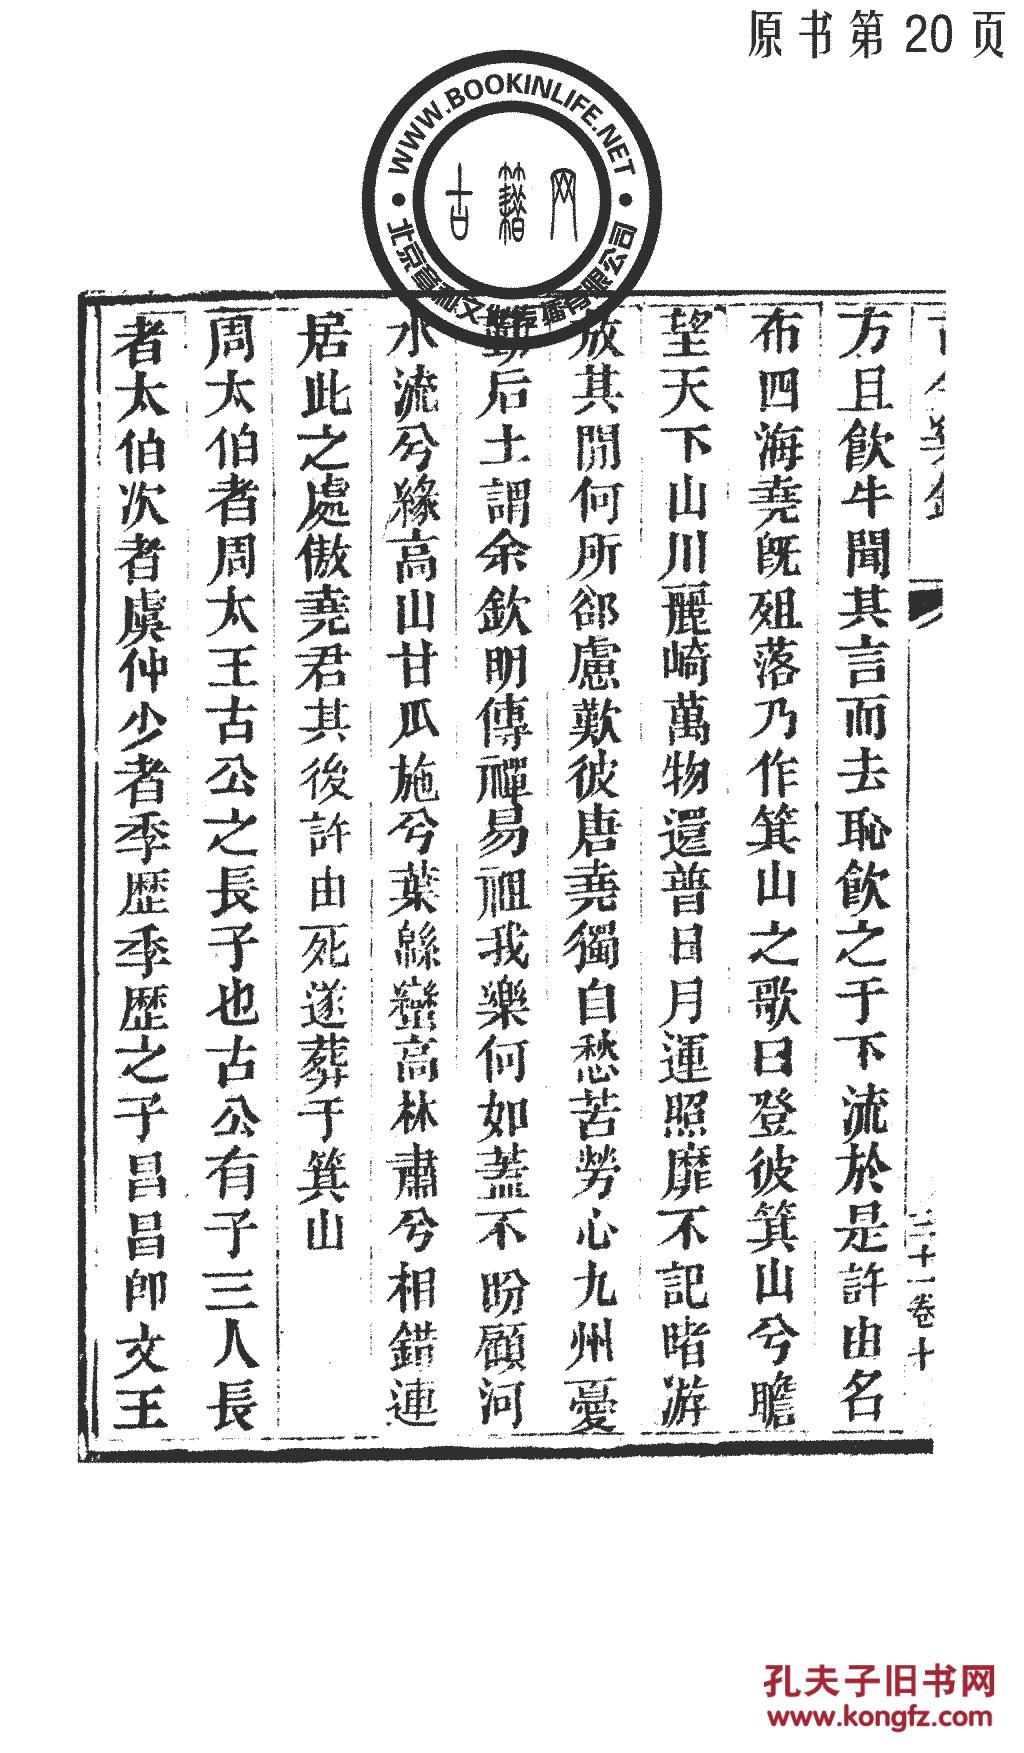 原书第20页
WWW.BOOKINLIFE.NET
古籍网
方且飲牛聞其言而去恥飲之于下流於是許由名
布四海堯旣殂落乃作箕山之歌曰登彼箕山兮瞻
望天下山川麗崎萬物還普日月運照靡不記睹游
放其閒何所郤慮歎彼唐堯獨自愁苦勞心九州憂
勤后土謂余欽明傳禪易祖我樂何如蓋不盼顧河
水流兮緣高山甘瓜施兮葉緜蠻高林肅兮相錯連
居此之處傲堯君其後許由死遂葬于箕山
周太伯者周太王古公之長子也古公有子三人長
者太伯次者虞仲少者季歴季歴之子昌昌卽文王
孔夫子旧书网
www.kongfz.com